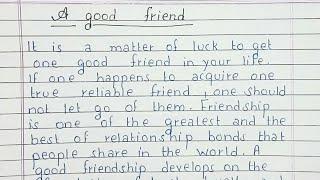 A good friend
It is a matter of luck to get
one good friend in your life.
If one happens to acquire one
true reliable friend, one should
not let go of them. Friendship
is one of the greatest and the
best of relationship bonds that
people share in the world. A
good friendship develops on the